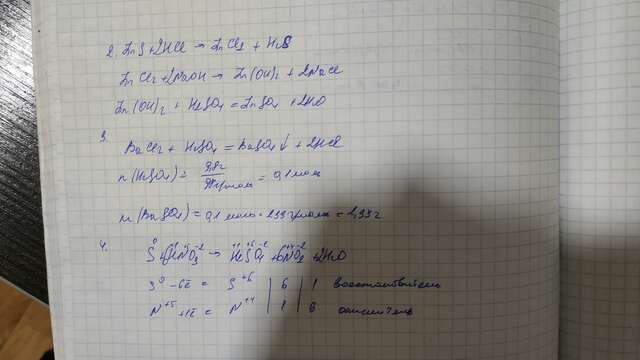 2. ZnS + 2HCl → ZnCl2 + H2S
ZnCl2 + 2NaOH → Zn(OH)2 + 2NaCl
Zn(OH)2 + H2SO4 = ZnSO4 + 2H2O
3.
BaCl2 + H2SO4 = BaSO4↓ + 2HCl
n(H2SO4) = 9,8г / 98г/моль = 0,1 моль
m(BaSO4) = 0,1 моль · 233 г/моль = 2,33 г
4.
S⁰ + 6H⁺¹N⁺⁵O3⁻² → H2⁺¹S⁺⁶O4⁻² + 6N⁺⁴O2⁻² + 2H2O
S⁰ - 6ē = S⁺⁶ | 6 | 1 восстановитель
N⁺⁵ + 1ē = N⁺⁴ | 1 | 6 окислитель